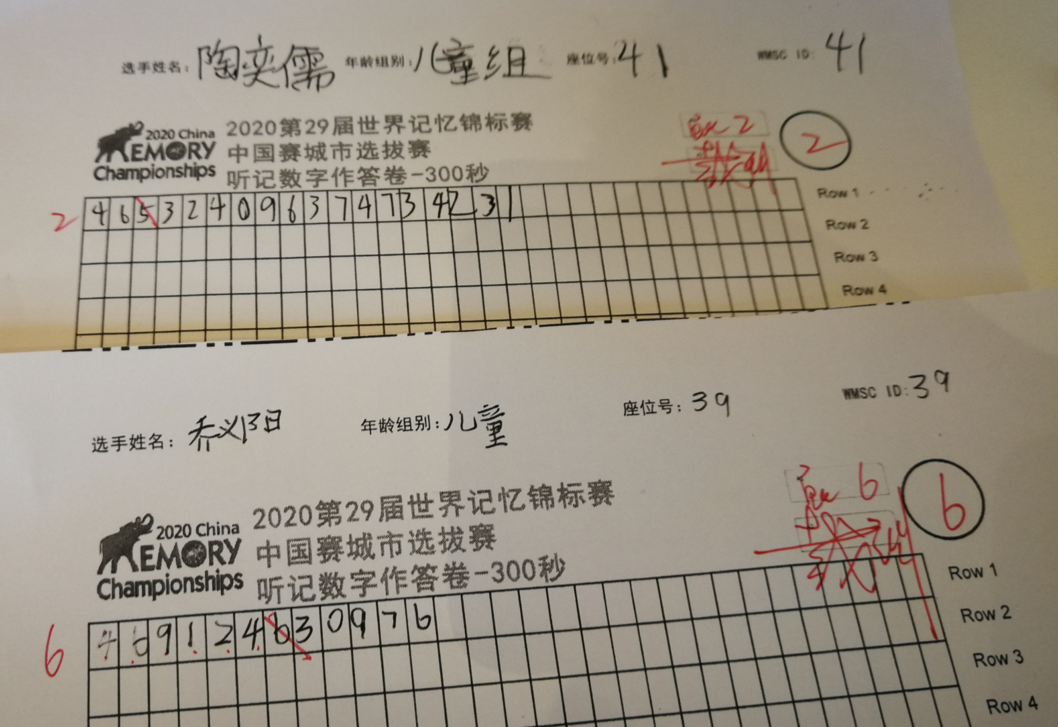 选手姓名: 陶奕儒 年龄组别: 儿童组 座位号: 41 WMSC ID: 41
2020 China
MEMORY
Championships
2020第29届世界记忆锦标赛
中国赛城市选拔赛
听记数字作答卷-300秒
2
2
2
4 6 5 3 2 4 0 9 6 3 7 4 7 3 4 2 3 1
Row 1
Row 2
Row 3
Row 4
选手姓名: 乔义阳 年龄组别: 儿童 座位号: 39 WMSC ID: 39
2020 China
MEMORY
Championships
2020第29届世界记忆锦标赛
中国赛城市选拔赛
听记数字作答卷-300秒
6
6
6
4 6 9 1 2 4 6 3 0 9 7 6
Row 1
Row 2
Row 3
Row 4